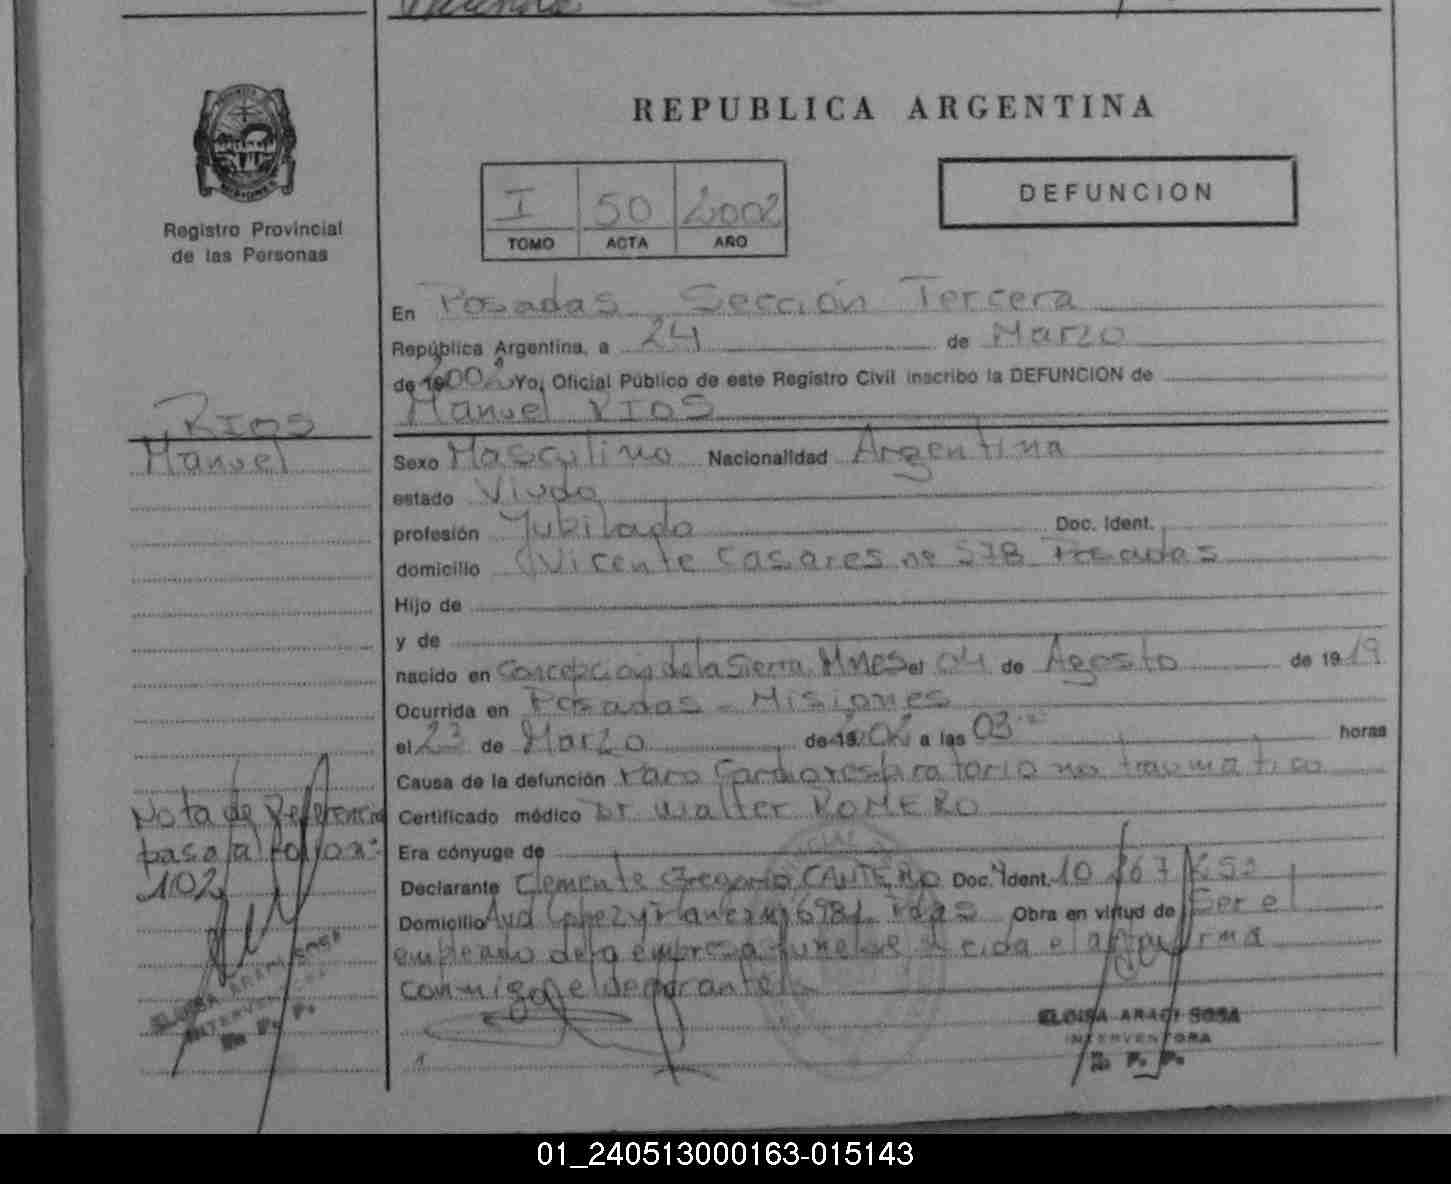 REPUBLICA ARGENTINA
DEFUNCION
I 50 2002
TOMO ACTA AÑO
Registro Provincial
de las Personas
En Posadas Sección Tercera
República Argentina, a 24 de Marzo
de 2002 Yo, Oficial Público de este Registro Civil inscribo la DEFUNCION de
Manuel RIOS
RIOS
Manuel
Sexo Masculino Nacionalidad Argentina
estado Viudo
profesión Jubilado Doc. Ident.
domicilio Vicente Casares nº 578 Posadas
Hijo de
y de
nacido en Concepcion de la Sierra Mnes el 04 de Agosto de 1919
Ocurrida en Posadas - Misiones
el 23 de Marzo de 2002 a las 03 horas
Causa de la defunción Paro Cardiorespiratorio no traumatico
Certificado médico Dr Walter ROMERO
Era cónyuge de
Declarante Clemente Gregorio CANTERO Doc. Ident. 10
Domicilio Avd Lopez y Planes Pdas Obra en virtud de Ser el
empleado de la empresa funebre leida el acta firma
conmigo el declarante
Nota de Referencia
pasa al folio nº
102
ELOISA ARACI SOSA
INTERVENTORA
R. P. P.
ELOISA ARACI SOSA
INTERVENTORA
R. P. P.
01_240513000163-015143